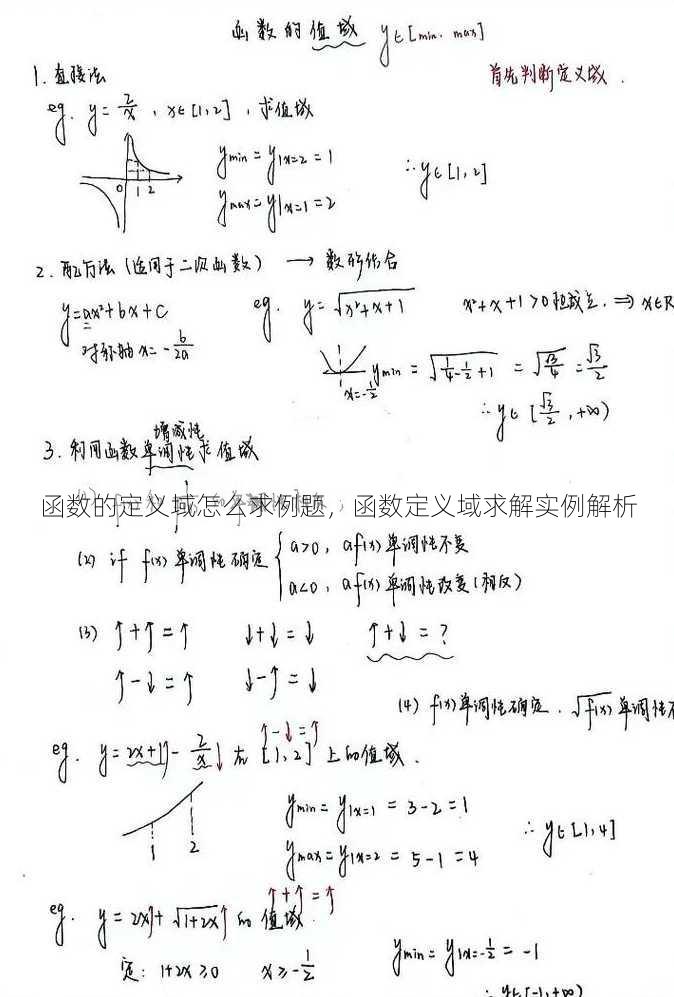 函数的值域 y∈[min. max]
1. 直接法
首先判断定义域.
eg. y = 2/x , x∈[1,2] , 求值域
0 1 2
ymin = y|x=2 = 1
∴ y∈[1,2]
ymax = y|x=1 = 2
2. 配方法 (适用于二次函数) → 数形结合
y=ax²+bx+c
eg. y = √(x²+x+1)
x²+x+1>0 恒成立. ⇒ x∈R
对称轴 x = -b/2a
x=-1/2
ymin = √(1/4-1/2+1) = √(√3/4) = √3/2
∴ y∈[√3/2, +∞)
增减性
3. 利用函数单调性求值域
函数的定义域怎么求例题，函数定义域求解实例解析
(2) if f(x) 单调性确定
a>0, af(x) 单调性不变
a<0, af(x) 单调性改变 (相反)
(3) ↑+↑=↑ ↓+↓=↓ ↑+↓=?
↑-↓=↑ ↓-↑=↓
(4) f(x) 单调性确定. √f(x) 单调性不
↑-↓=↑
eg. y = 2x+1↑ - 2/x↓ 在 [1,2] 上的值域.
1 2
ymin = y|x=1 = 3-2=1
∴ y∈[1,4]
ymax = y|x=2 = 5-1=4
↑+↑=↑
eg. y = 2x↑+ √(1+2x)↑ 的值域.
定: 1+2x≥0 x≥-1/2
ymin = y|x=-1/2 = -1
∴ y∈[-1,+∞)